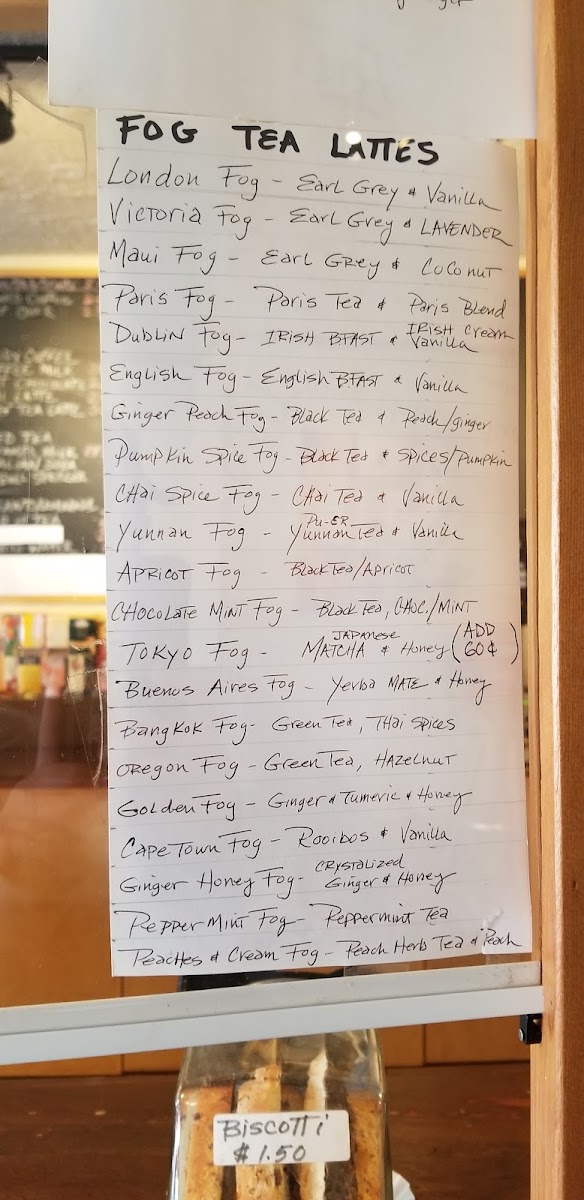 FOG TEA LATTES
London Fog - Earl Grey & Vanilla
Victoria Fog - Earl Grey & LAVENDER
Maui Fog - Earl Grey & Coconut
Paris Fog - Paris Tea & Paris Blend
Dublin Fog - IRISH BFAST & IRISH Cream Vanilla
English Fog - English BFAST & Vanilla
Ginger Peach Fog - Black Tea & Peach/ginger
Pumpkin Spice Fog - Black Tea & Spices/Pumpkin
CHai Spice Fog - CHai Tea & Vanilla
Yunnan Fog - Yunnan Pu-ER Tea & Vanilla
APRICOT Fog - Black Tea/Apricot
CHOCOLATE MINT Fog - Black Tea, CHOC./MINT
TOKYO Fog - JAPANESE MATCHA & Honey (ADD 60¢)
Buenos Aires Fog - Yerba MATE & Honey
BANGKOK Fog - Green Tea, THai Spices
OREGON Fog - Green Tea, HAZelnut
GOLDEN Fog - Ginger & Tumeric & Honey
CAPE TOWN Fog - Rooibos & Vanilla
Ginger Honey Fog - CRYSTALIZED Ginger & Honey
PEPPERMINT Fog - Peppermint Tea
PEACHES & Cream Fog - Peach Herb Tea & Peach
BISCOTTI
$1.50